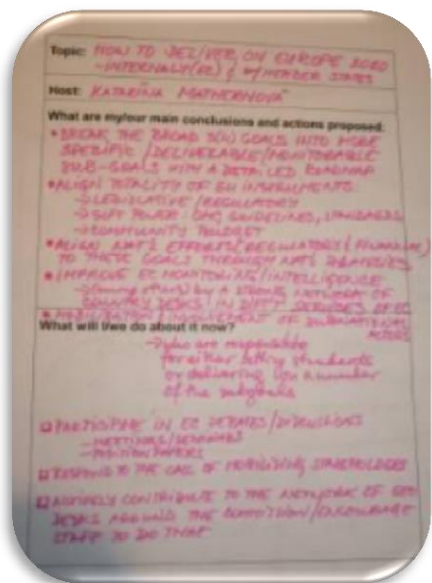 Topic: HOW TO DELIVER ON EUROPE 2020
- INTERNALLY (EC) & W/ MEMBER STATES
Host: KATARÍNA MATHERNOVÁ
What are my/our main conclusions and actions proposed:
• BREAK THE BROAD GOALS INTO MORE
SPECIFIC / DELIVERABLE / MONITORABLE
SUB-GOALS WITH A DETAILED ROADMAP
• ALIGN TOTALITY OF EU INSTRUMENTS:
→ LEGISLATIVE / REGULATORY
→ SOFT POWER: OMC, GUIDELINES, STANDARDS
→ COMMUNITY BUDGET
• ALIGN NAT'L EFFORTS (REGULATORY & FINANCIAL)
TO THESE GOALS THROUGH NAT'L STRATEGIES
• IMPROVE EC MONITORING / INTELLIGENCE
→ (among others) by A STRONG NETWORK OF
COUNTRY DESKS IN DIFF'T SERVICES OF EC
• INVOLVEMENT OF SUBNATIONAL
ACTORS
What will I/we do about it now?
→ who are responsible
for either setting standards
or delivering on a number
of the subgoals
PARTICIPATE IN EC DEBATES / DISCUSSIONS
- MEETINGS / SEMINARS
- POSITION PAPERS
RESPOND TO THE CALL OF MOBILIZING STAKEHOLDERS
ACTIVELY CONTRIBUTE TO THE NETWORK OF GEO
DESKS AROUND THE / ENCOURAGE
STAFF TO DO THAT